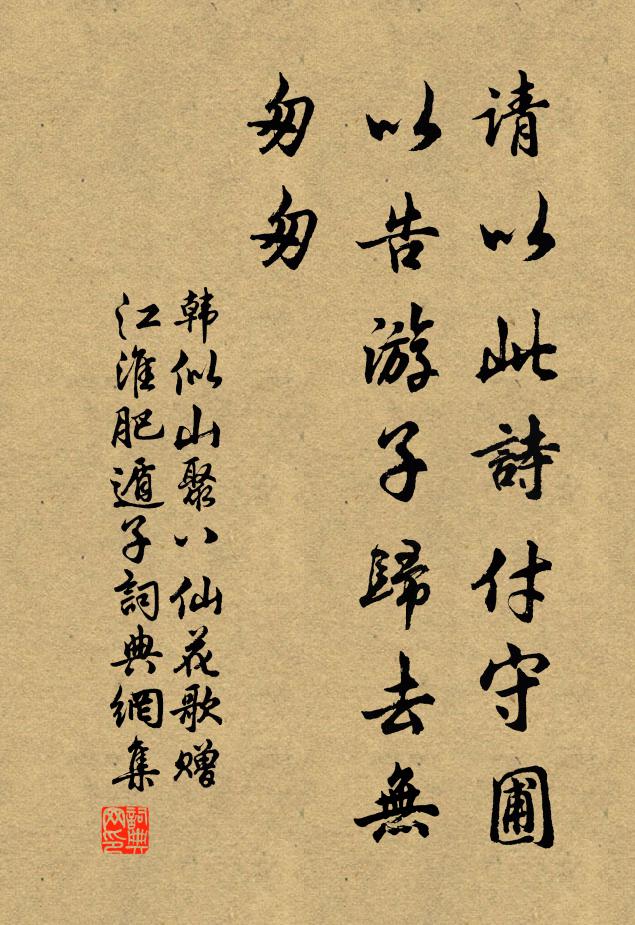 请以此詩付守圃
以告游子歸去無
匆匆
韩似山聚八仙花歌赠
江淮肥遁子詞典網集
詞典
网印